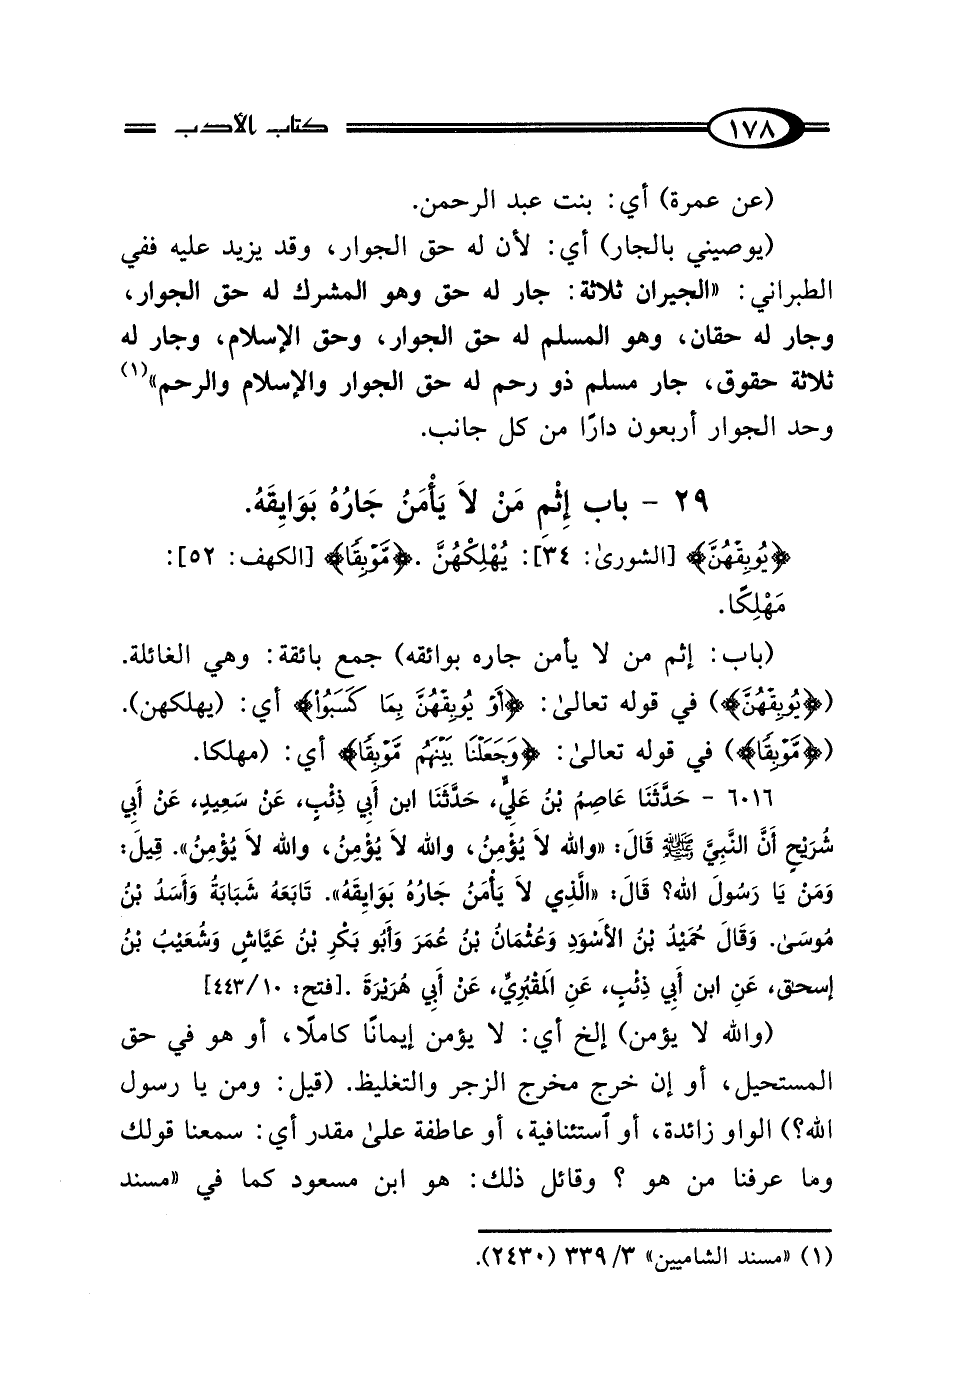 ١٧٨ كتاب الأدب
(عن عمرة) أي: بنت عبد الرحمن.
(يوصيني بالجار) أي: لأن له حق الجوار، وقد يزيد عليه ففي
الطبراني: «الجيران ثلاثة: جار له حق وهو المشرك له حق الجوار،
وجار له حقان، وهو المسلم له حق الجوار، وحق الإسلام، وجار له
ثلاثة حقوق، جار مسلم ذو رحم له حق الجوار والإسلام والرحم»(١)
وحد الجوار أربعون دارًا من كل جانب.
٢٩ - باب إِثْمِ مَنْ لاَ يَأْمَنُ جَارُهُ بَوَايِقَهُ.
﴿يُوبِقْهُنَّ﴾ [الشورىٰ: ٣٤]: يُهْلِكْهُنَّ. ﴿مَّوْبِقًا﴾ [الكهف: ٥٢]:
مَهْلِكًا.
(باب: إثم من لا يأمن جاره بوائقه) جمع بائقة: وهي الغائلة.
(﴿يُوبِقْهُنَّ﴾) في قوله تعالىٰ: ﴿أَوْ يُوبِقْهُنَّ بِمَا كَسَبُوا۟﴾ أي: (يهلكهن).
(﴿مَّوْبِقًا﴾) في قوله تعالىٰ: ﴿وَجَعَلْنَا بَيْنَهُم مَّوْبِقًا﴾ أي: (مهلكا.
٦٠١٦ - حَدَّثَنَا عَاصِمُ بْنُ عَلِيٍّ، حَدَّثَنَا ابن أَبِي ذِئْبٍ، عَنْ سَعِيدٍ، عَنْ أَبِي
شُرَيْحٍ أَنَّ النَّبِيَّ ﷺ قَالَ: «والله لاَ يُؤْمِنُ، والله لاَ يُؤْمِنُ، والله لاَ يُؤْمِنُ». قِيلَ:
وَمَنْ يَا رَسُولَ الله؟ قَالَ: «الَّذِي لاَ يَأْمَنُ جَارُهُ بَوَايِقَهُ». تَابَعَهُ شَبَابَةُ وَأَسَدُ بْنُ
مُوسَىٰ. وَقَالَ حُمَيْدُ بْنُ الأَسْوَدِ وَعُثْمَانُ بْنُ عُمَرَ وَأَبُو بَكْرِ بْنُ عَيَّاشٍ وَشُعَيْبُ بْنُ
إسحٰق، عَنِ ابن أَبِي ذِئْبٍ، عَنِ المَقْبُرِيِّ، عَنْ أَبِي هُرَيْرَةَ. [فتح: ٤٤٣/١٠]
(والله لا يؤمن) إلخ أي: لا يؤمن إيمانًا كاملًا، أو هو في حق
المستحيل، أو إن خرج مخرج الزجر والتغليظ. (قيل: ومن يا رسول
الله؟) الواو زائدة، أو ٱستئنافية، أو عاطفة علىٰ مقدر أي: سمعنا قولك
وما عرفنا من هو ؟ وقائل ذلك: هو ابن مسعود كما في «مسند
(١) «مسند الشاميين» ٣/ ٣٣٩ (٢٤٣٠).